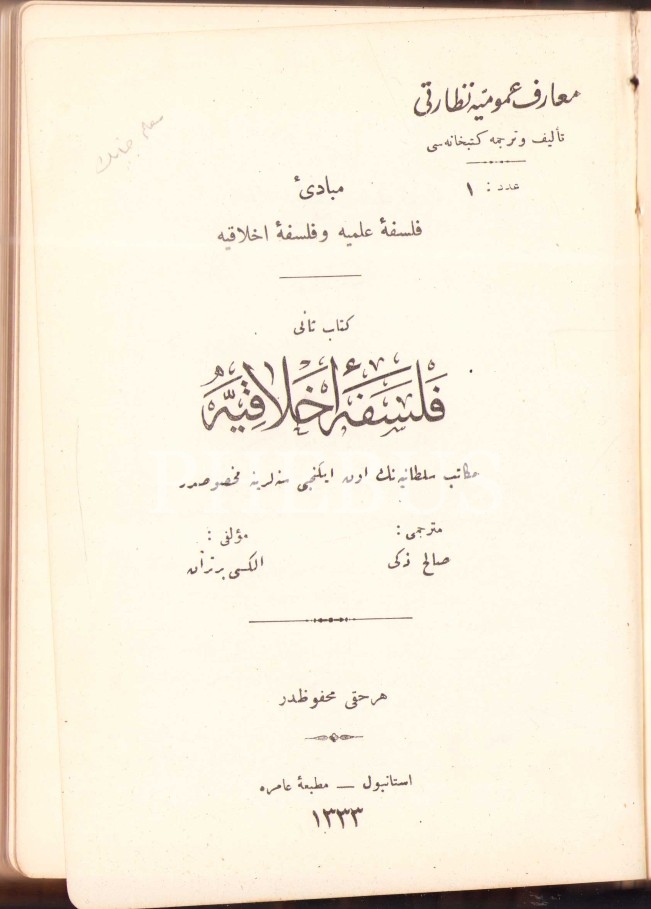 معارف عمومیه نظارتی
تألیف و ترجمه کتبخانه‌سی
عدد : ١
مبادئ
فلسفۀ علمیه و فلسفۀ اخلاقیه
کتاب ثانی
فَلسَفَۀ أخلاقِیَّه
مکاتب سلطانیه نك اون ایکنجی سنه لرینه مخصوصدر
مترجمی :
صالح ذکی
مؤلفی :
الکسی برتران
هر حقی محفوظدر
استانبول — مطبعۀ عامره
١٣٣٣
PHEBUS